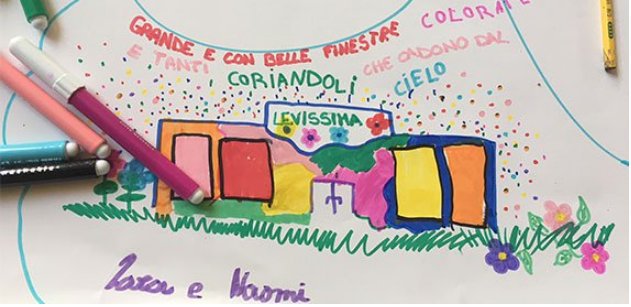 GRANDE E CON BELLE FINESTRE COLORATE
E TANTI CORIANDOLI CHE CADONO DAL
CIELO
LEVISSIMA
e Naomi